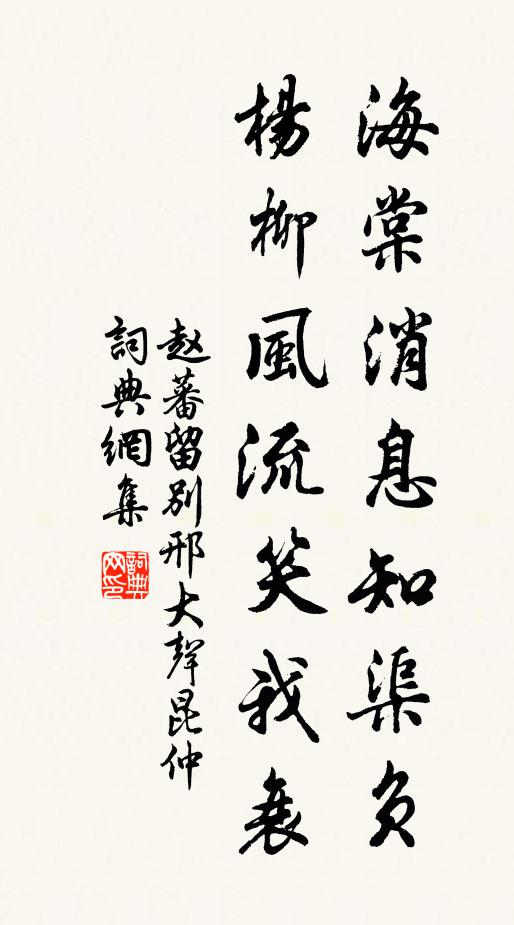 海棠消息知渠負
楊柳風流笑我衰
赵蕃留别邢大聲昆仲
詞典網集
詞典网印